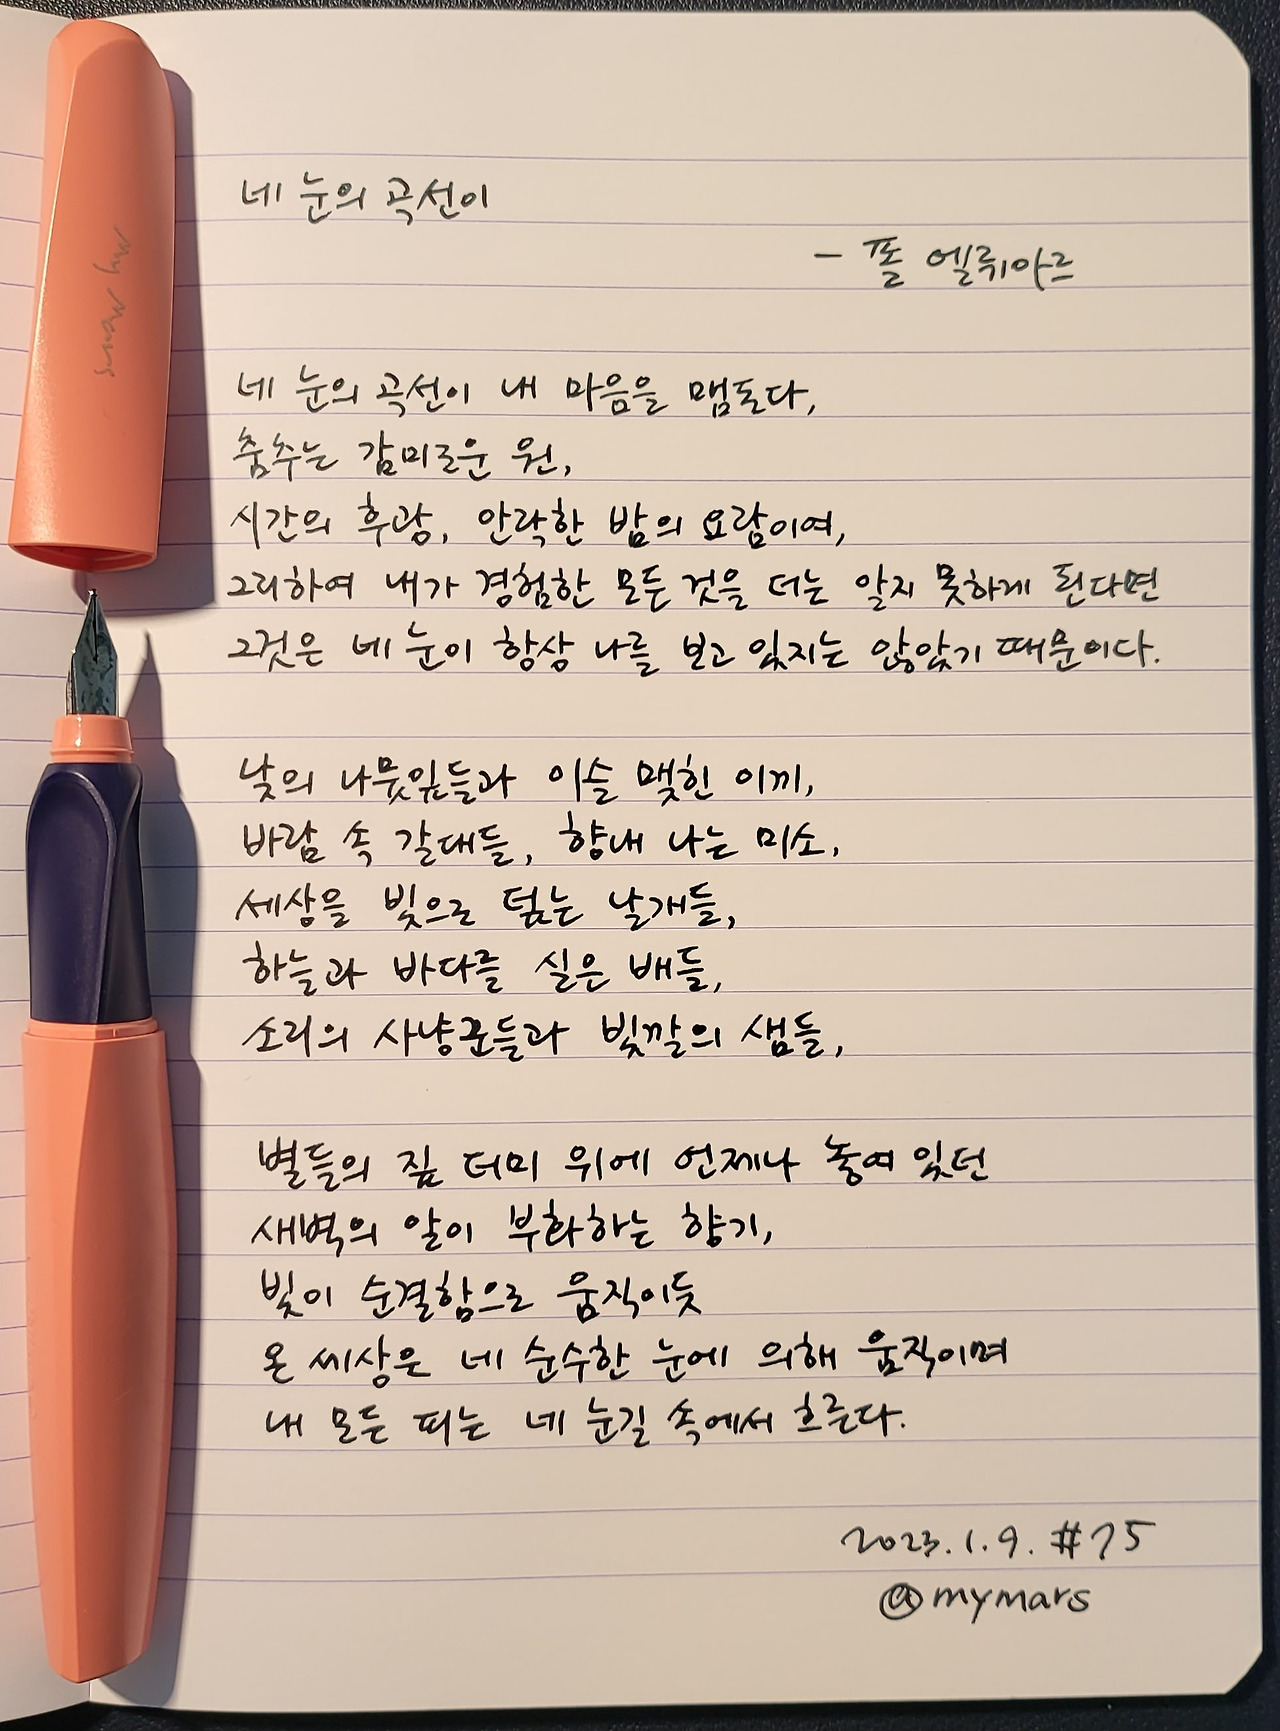 my mars
네 눈의 곡선이
- 폴 엘뤼아르
네 눈의 곡선이 내 마음을 맴돈다,
춤추는 감미로운 원,
시간의 후광, 안락한 밤의 요람이여,
그리하여 내가 경험한 모든 것을 더는 알지 못하게 된다면
그것은 네 눈이 항상 나를 보고 있지는 않았기 때문이다.
낮의 나뭇잎들과 이슬 맺힌 이끼,
바람 속 갈대들, 향내 나는 미소,
세상을 빛으로 덮는 날개들,
하늘과 바다를 실은 배들,
소리의 사냥꾼들과 빛깔의 샘들,
별들의 짚 더미 위에 언제나 놓여 있던
새벽의 알이 부화하는 향기,
빛이 순결함으로 움직이듯
온 세상은 네 순수한 눈에 의해 움직이며
내 모든 피는 네 눈길 속에서 흐른다.
2023.1.9. #75
@mymars